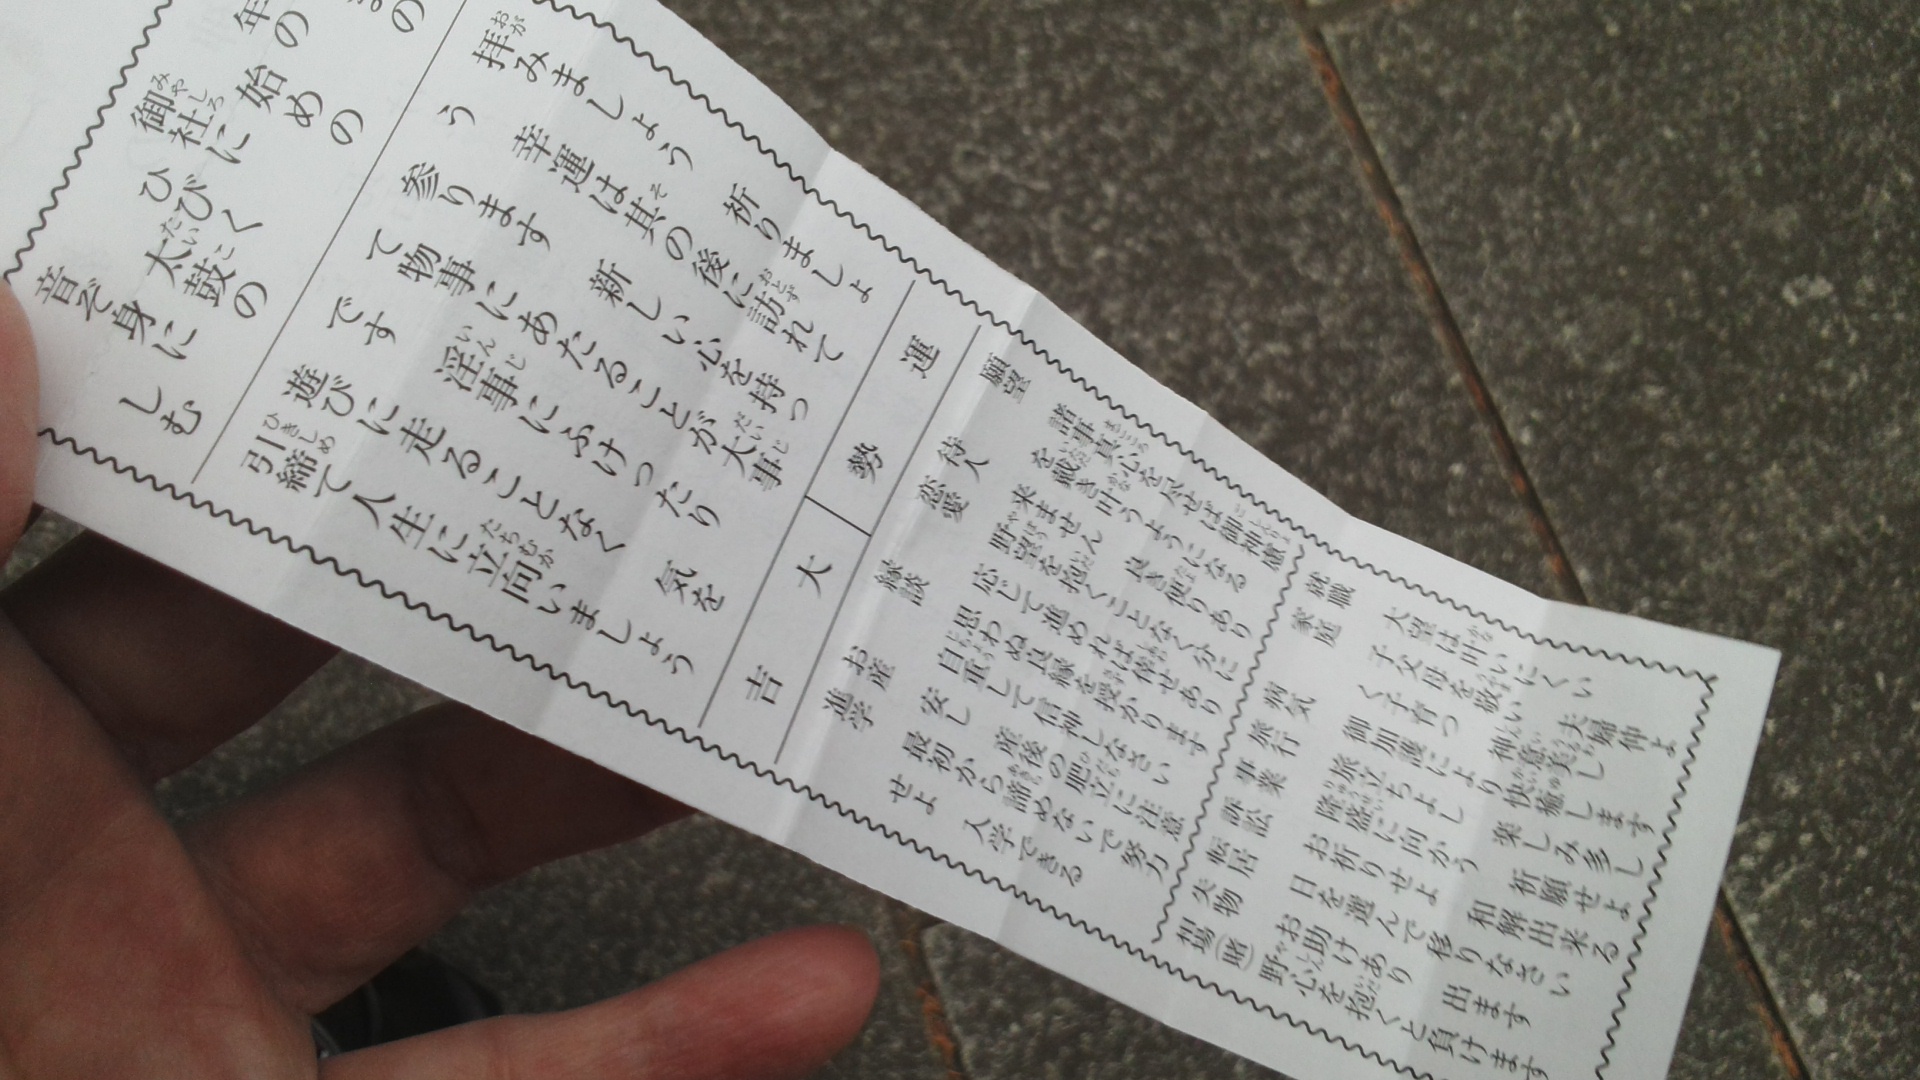 年の始めの
御社に
ひびく
太鼓の
音ぞ身に
しむ
拝みましょう 祈りましょ
う 幸運は其の後に訪れて
参ります 新しい心を持っ
て物事にあたることが大事
です 淫事にふけったり
遊びに走ることなく 気を
引締て人生に立向いましょう
運勢 大吉
願望 諸事真心を尽せば御神慮
を戴き叶うようになる
待人 来ません 良き便りあり
恋愛 野望を抱くことなく分に
応じて進めれば倖せあり
縁談 思わぬ良縁を授かります
自重して信仰しなさい
お産 安し 産後の肥立に注意
進学 最初から諦めないで努力
せよ 入学できる
就職 大望は叶いにくい
家庭 子父母を敬い 夫婦仲よ
く子育つ 神意美し
病気 御加護により快癒します
旅行 旅立ちよし 楽しみ多し
事業 隆盛に向かう 祈願せよ
訴訟 お祈りせよ 和解出来る
転居 日を選んで移りなさい
失物 お助けあり 出ます
相場 野心を抱くと負けます